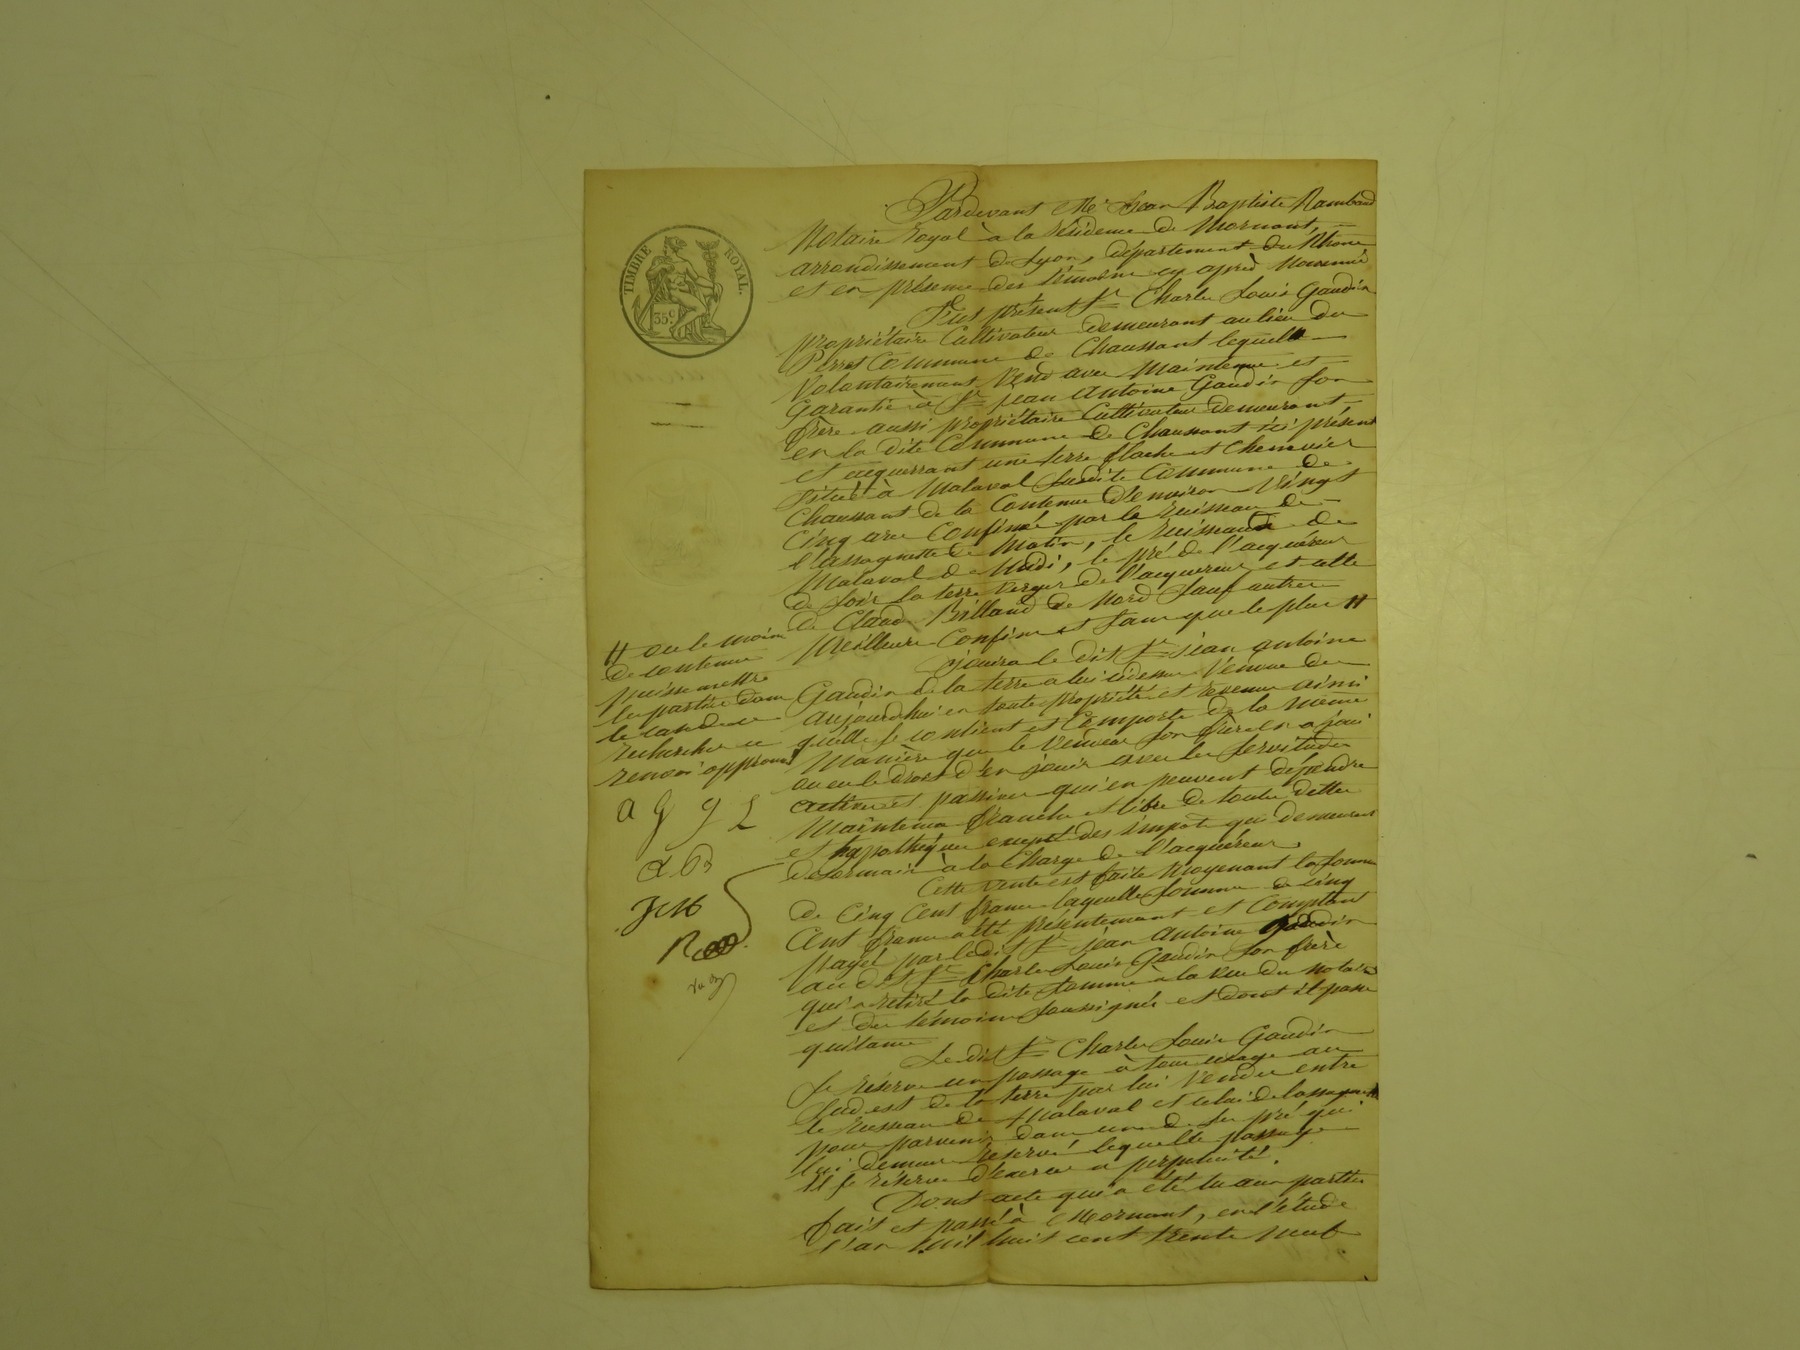 TIMBRE ROYAL.
35c
Pardevant Me Jean Baptiste Rambaud
Notaire Royal à la résidence de Mornant,
arrondissement de Lyon, département du Rhône
et en présence des témoins cy après nommés
Fut présent Sr Charles Louis Gaudin
propriétaire Cultivateur demeurant au lieu du
Perret Commune de Chaussant lequel
Volontairement Vend avec Maintenue et
Garantie à Sr jean Antoine Gaudin son
frère aussi propriétaire Cultivateur demeurant
en la dite Commune de Chaussant ici présent
et acquerrant une terre flache et Chenevier
située à Malaval susdite Commune de
Chaussant de la Contenue d'environ Vingt
Cinq ares Confinée par le Ruisseau de
l'assagnette de Matin, le Ruisseau de
Malaval de Midi, le pré de l'acquéreur
de soir la terre verger de l'acquereur et celle
de Claude Brillaud de Nord sauf autres
Meilleurs Confins et sans que le plus #
# ou le moins
de contenue
puisse mettre
les parties dans
le cas de se
rechercher ce
renvoi approuvé
a g g L
J M
R
Jouira le dit Sr jean antoine
Gaudin de la terre a lui cidessus Vendue de
aujourdhui en toute propriété et revenus ainsi
quelle se contient et Comporte de la même
Manière que le Vendeur son frère en a joui
ou eu le droit d'en jouir avec les servitudes
actives et passives qui en peuvent dépendre
Maintenue franche et libre de toutes dettes
et hypothèques excepté des impôts qui demeurent
desormais à la Charge de l'acquéreur.
Cette vente est faite Moyenant la somme
de Cinq Cent francs laquelle somme de cinq
Cent francs a été présentement et Comptant
payée par ledit Sr jean antoine Gaudin
audit Sr Charles Louis Gaudin son frère
qui a retiré la dite somme à la vue du notaire
et des témoins soussignés et dont il passe
quitance
Le dit Sr Charles Louis Gaudin
se réserve un passage à tous usage au
Sud est de la terre par lui Vendue entre
le Ruisseau de Malaval et celui de lassagnette
pour parvenir dans un de ses pré qui
lui demeure réservé lequelle passage
il se réserve d'exercer a perpetuité.
Dont acte qui a été lu aux parties
fait et passé à Mornant, en l'étude
l'an Mil huit cent trente neuf